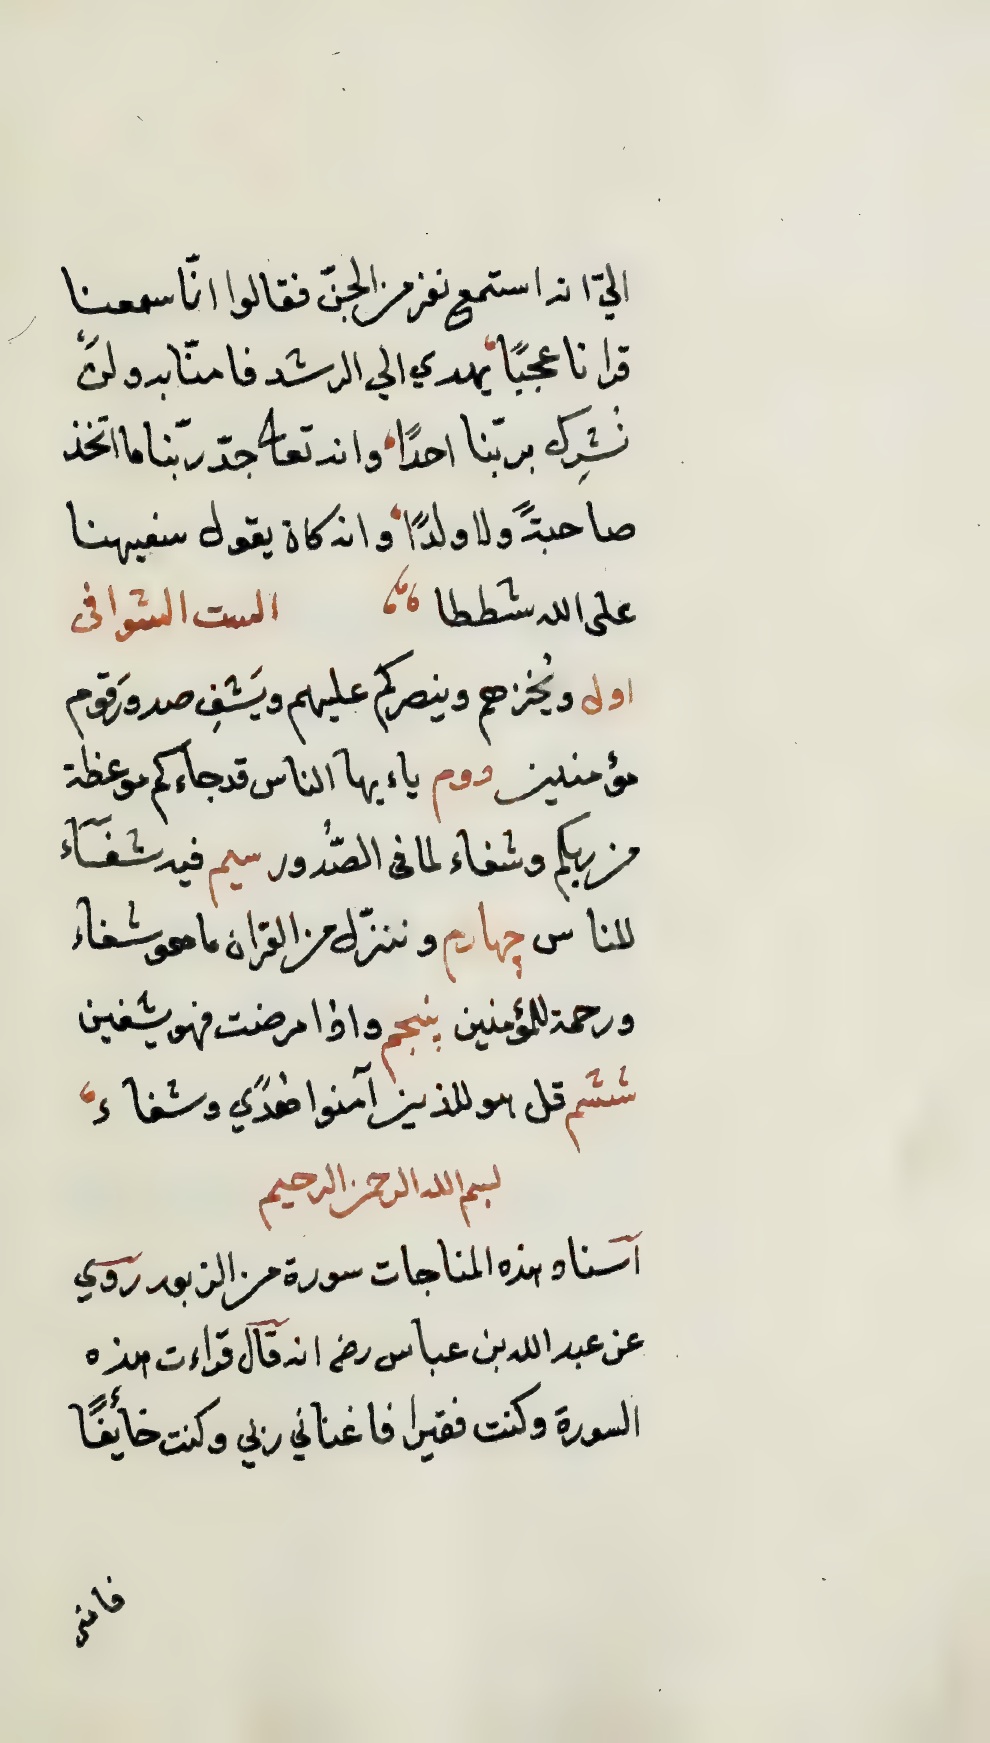 اليّ انه استمع نفر من الجنّ فقالوا انّا سمعنا
قرانا عجبًا يهدي الي الرشد فامنّا به ولنْ
نُشرِك بربّنا احدًا وانه تعالٰ جدّ ربّنا ما اتّخذ
صاحبةً ولا ولدًا وانه كان يقول سفيهنا
على الله شططا الست الشوافى
اولى ويُخزهم وينصركم عليهم ويَشفِ صدورَ قوم
مؤمنين دووم ياءيها الناس قد جاءكم موعظة
من ربكم وشفاء لما فى الصُّدور سيم فيه شفآء
للناس چهارم وننزّل من القران ما هو شفاء
ورحمة للمؤمنين پنجم واذا مرضت فهو يشفين
ششم قل هو للذين آمنوا هُدًي وشفاء
بسم الله الرحمن الرحيم
آسناد هذه المناجات سورة من الزبور روي
عن عبد الله بن عباس رضى انه قال قراءت هذه
السورة وكنت فقيرا فاغناني ربي وكنت خائفًا
فامنى